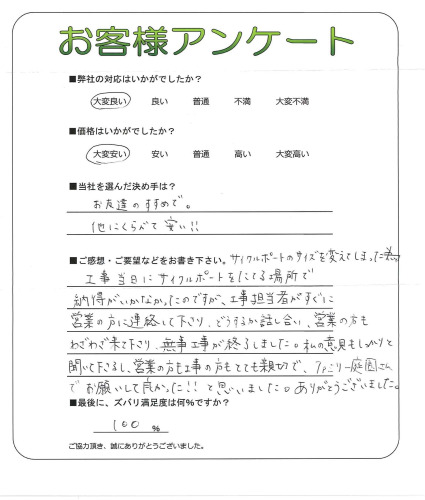 お客様アンケート
■弊社の対応はいかがでしたか？
大変良い 良い 普通 不満 大変不満
■価格はいかがでしたか？
大変安い 安い 普通 高い 大変高い
■当社を選んだ決め手は？
お友達のすすめで。
他にくらべて安い!!
■ご感想・ご要望などをお書き下さい。サイクルポートのサイズを変えてしまった
工事当日にサイクルポートをたてる場所で
納得がいかなかったのですが、工事担当者がすぐに
営業の方に連絡して下さり、どうするか話し合い、営業の方も
わざわざ来て下さり、無事工事が終了しました。私の意見もしっかりと
聞いて下さるし、営業の方も工事の方もとても親切で、ファミリー庭園さん
でお願いして良かった!!と思いました。ありがとうございました。
■最後に、ズバリ満足度は何％ですか？
100 %
ご協力頂き、誠にありがとうございました。